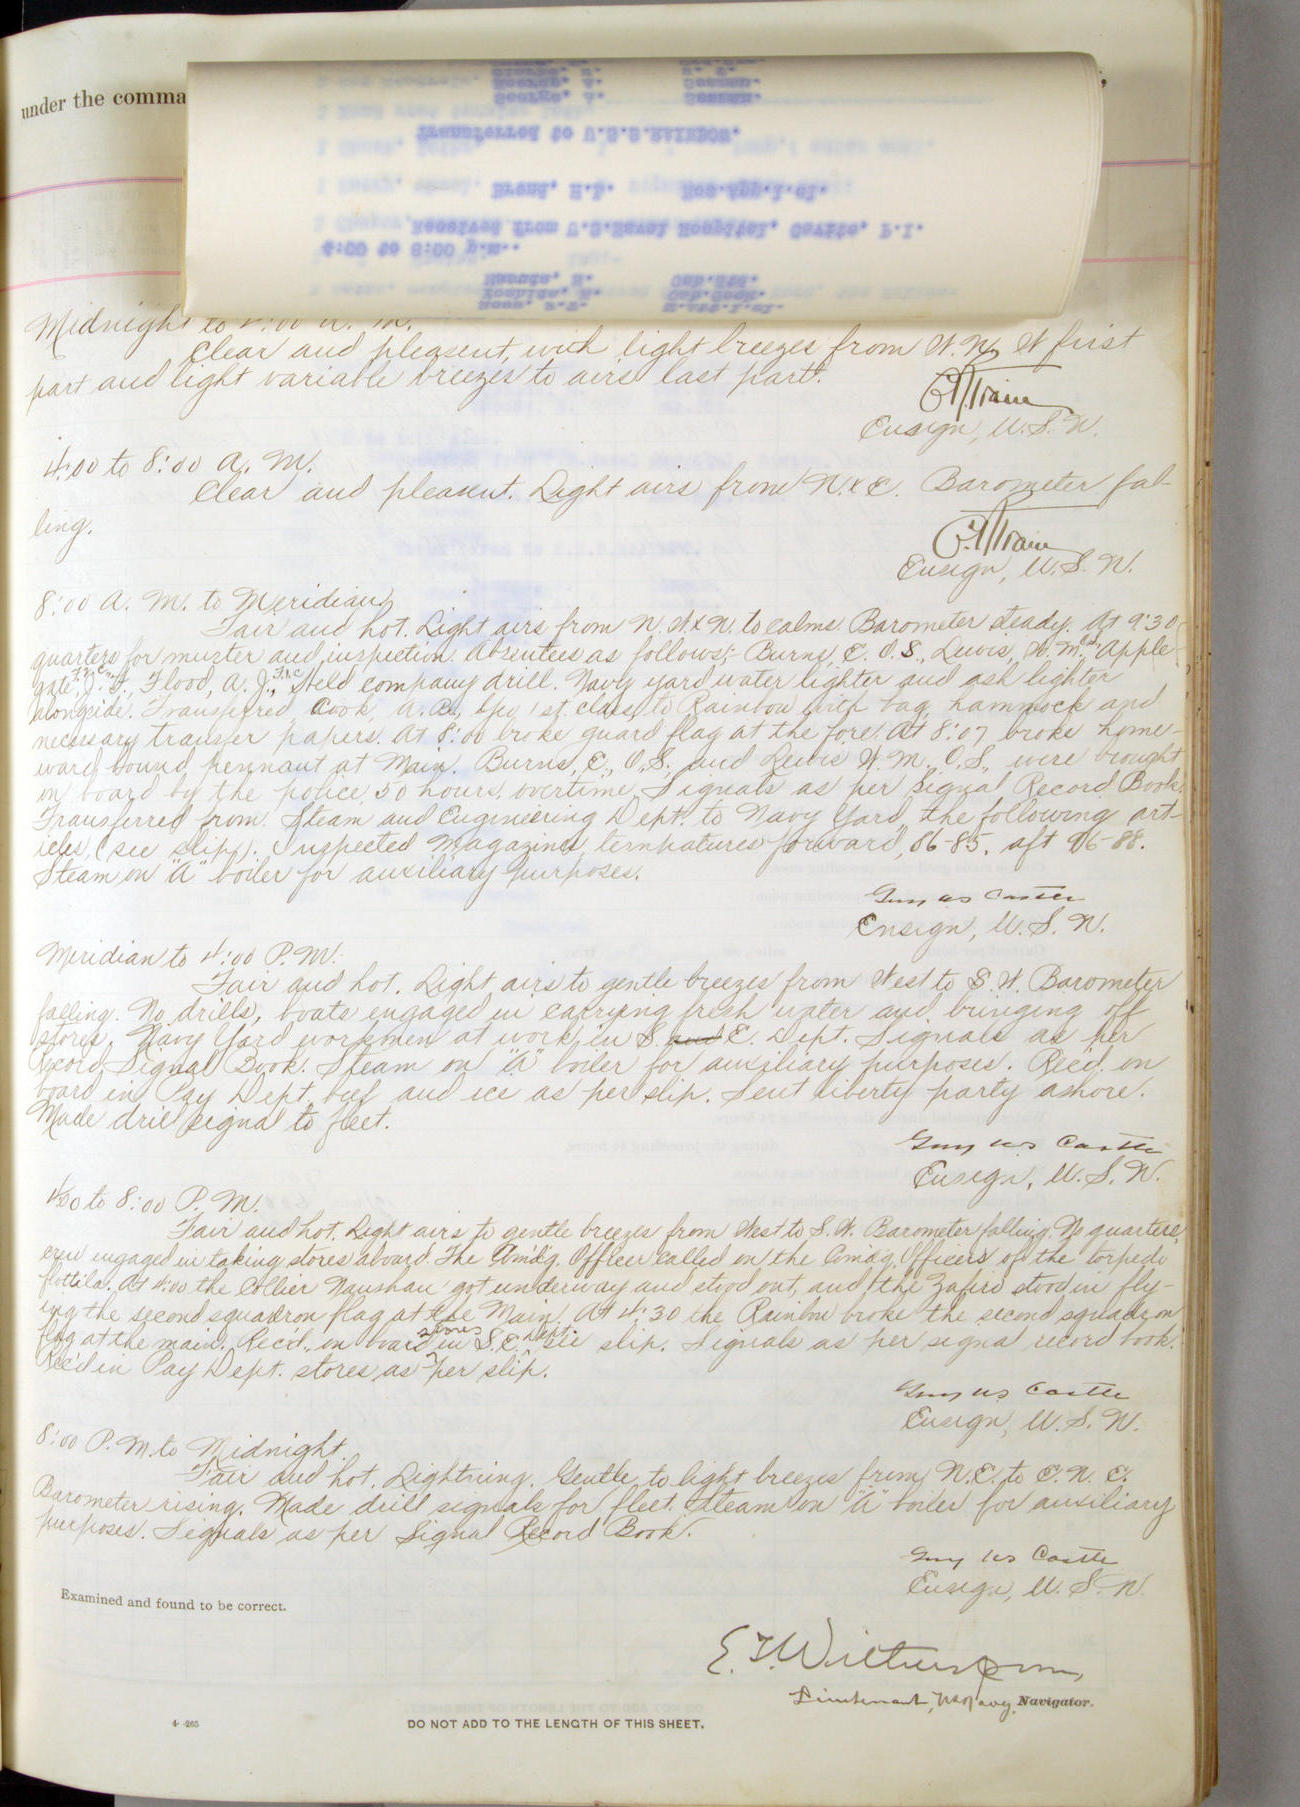 under the comma
Transferred to U.S.S.RAINBOW.
Brent, H.F. Hos.App.1.cl.
Received from U.S.Naval Hospital, Cavite, P.I.
4:00 to 8:00 p.m..
Midnight to 4:00 A. M.
Clear and pleasent, with light breezes from W.N.W first
part and light variable breezes to airs last part.
C.R. Train
Ensign, U.S.N.
4:00 to 8:00 A. M.
Clear and pleasent. Light airs from N.x E. Barometer fal-
ling.
C.R. Train
Ensign, U.S.N.
8:00 A. M. to Meridian
Fair and hot. Light airs from N.W.x N. to calms. Barometer steady. At 9:30
quarters for muster and inspection. Absentees as follows;- Burns, C. O.S., Lewis, W.M. O.S., Apple-
gate, J. F., Flood, A. J., Held company drill. Navy yard water lighter and ash lighter
alongside. Transferred Cook, 1st class, to Rainbow with bag, hammock and
necessary transfer papers. At 8:00 broke guard flag at the fore. At 8:07 broke home-
ward bound pennant at Main. Burns, C., O.S., and Lewis W.M., O.S., were brought
on board by the police, 50 hours overtime. Signals as per Signal Record Book.
Transferred from Steam and Engineering Dept. to Navy Yard, the following art-
icles, (see slip). Inspected Magazines, tempatures forward, 86-85, aft 96-88.
Steam on "A" boiler for auxiliary purposes.
Guy W.S. Castle
Ensign, U.S.N.
Meridian to 4:00 P.M.
Fair and hot. Light airs to gentle breezes from West to S.W. Barometer
falling. No drills, boats engaged in carrying fresh water and bringing off
stores. Navy Yard workmen at work in S. and E. Dept. Signals as per
Record Signal Book. Steam on "A" boiler for auxiliary purposes. Rec'd. on
board in Pay Dept. beef and ice as per slip. Sent liberty party ashore.
Made drill signal to fleet.
Guy W.S. Castle
Ensign, U.S.N.
4:00 to 8:00 P. M.
Fair and hot. Light airs to gentle breezes from West to S.W. Barometer falling. No quarters,
crew engaged in taking stores aboard. The Com'd'g. Officer called on the Com'd'g Officers of the torpedo
flottila. At 4:00 the Collier Nanshan got underway and stood out, and the Zafiro stood in fly-
ing the second squadron flag at the Main. At 4:30 the Rainbow broke the second squadron
flag at the main. Rec'd. on board stores in S.E. Dept. see slip. Signals as per signal record book.
Rec'd in Pay Dept. stores as per slip.
Guy W.S. Castle
Ensign, U.S.N.
8:00 P.M. to Midnight.
Fair and hot. Lightning. Gentle to light breezes from N.E. to E.N.E.
Barometer rising. Made drill signals for fleet. Steam on "A" boiler for auxiliary
purposes. Signals as per Signal Record Book.
Guy W.S. Castle
Ensign, U.S.N.
Examined and found to be correct.
Lieutenant, U.S. Navy, Navigator.
4-265
DO NOT ADD TO THE LENGTH OF THIS SHEET.